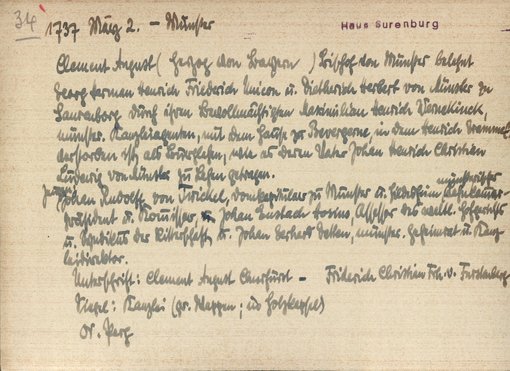 34
1737 März 2. – Münster
Haus Surenburg
Clement August (Herzog von Bayern) Bischof von Münster belehnt
Georg Herman Henrich Friederich Unicon u. Dietherich Herbert von Münster zu
Surenborg durch ihren Bevollmächtigten Maximilian Henrich
münster. Kanzleiagenten, mit dem Hause zu Bevergerne, in dem Henrich
verstorben ist, als Burglehen, wie es deren Vater Johan Henrich Christian
Ludwig von Münster zu Lehen getragen.
Johan Rudolff von Twickel, Domkapitular zu Münster u. Hildesheim münsterischer Lehnkammer-
präsident u. Johan Eustach Assessor des weltl. Hofgerichts
u. Syndikus der Ritterschaft, Johan Gerhart münster. Geheimrat u. Kanz-
leidirektor.
Unterschrift: Clement August Churfürst – Friderich Christian Frh. v. Furstenberg
Siegel: Kanzlei (gr. Wappen; in Holzkapsel)
Or. Perg